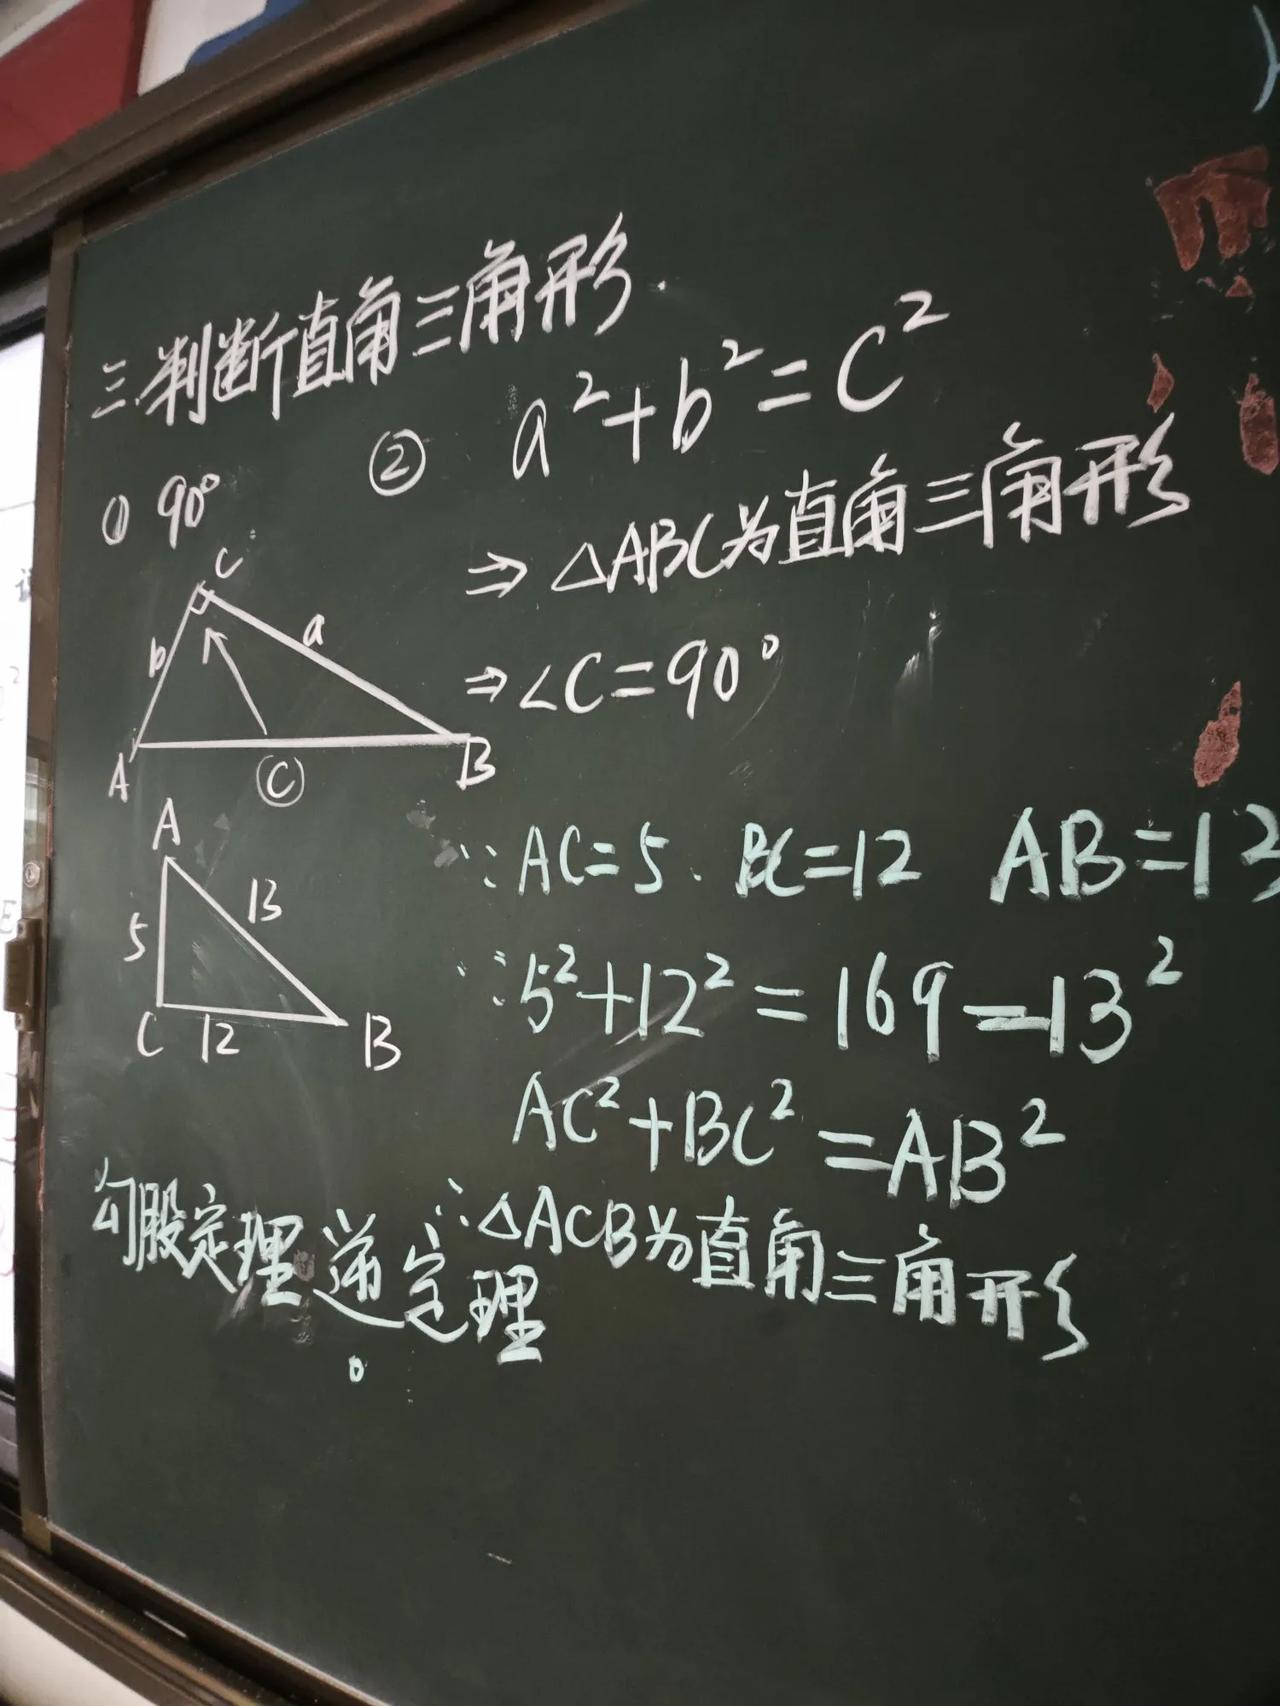 三.判断直角三角形.
① 90°
② a²+b²=C²
⇒ △ABC为直角三角形
⇒∠C=90°
C
b
a
A
B
C
A
5
13
C
12
B
∵ AC=5. BC=12 AB=13
∵5²+12²=169=13²
AC²+BC²=AB²
∴△ACB为直角三角形
勾股定理逆定理
。